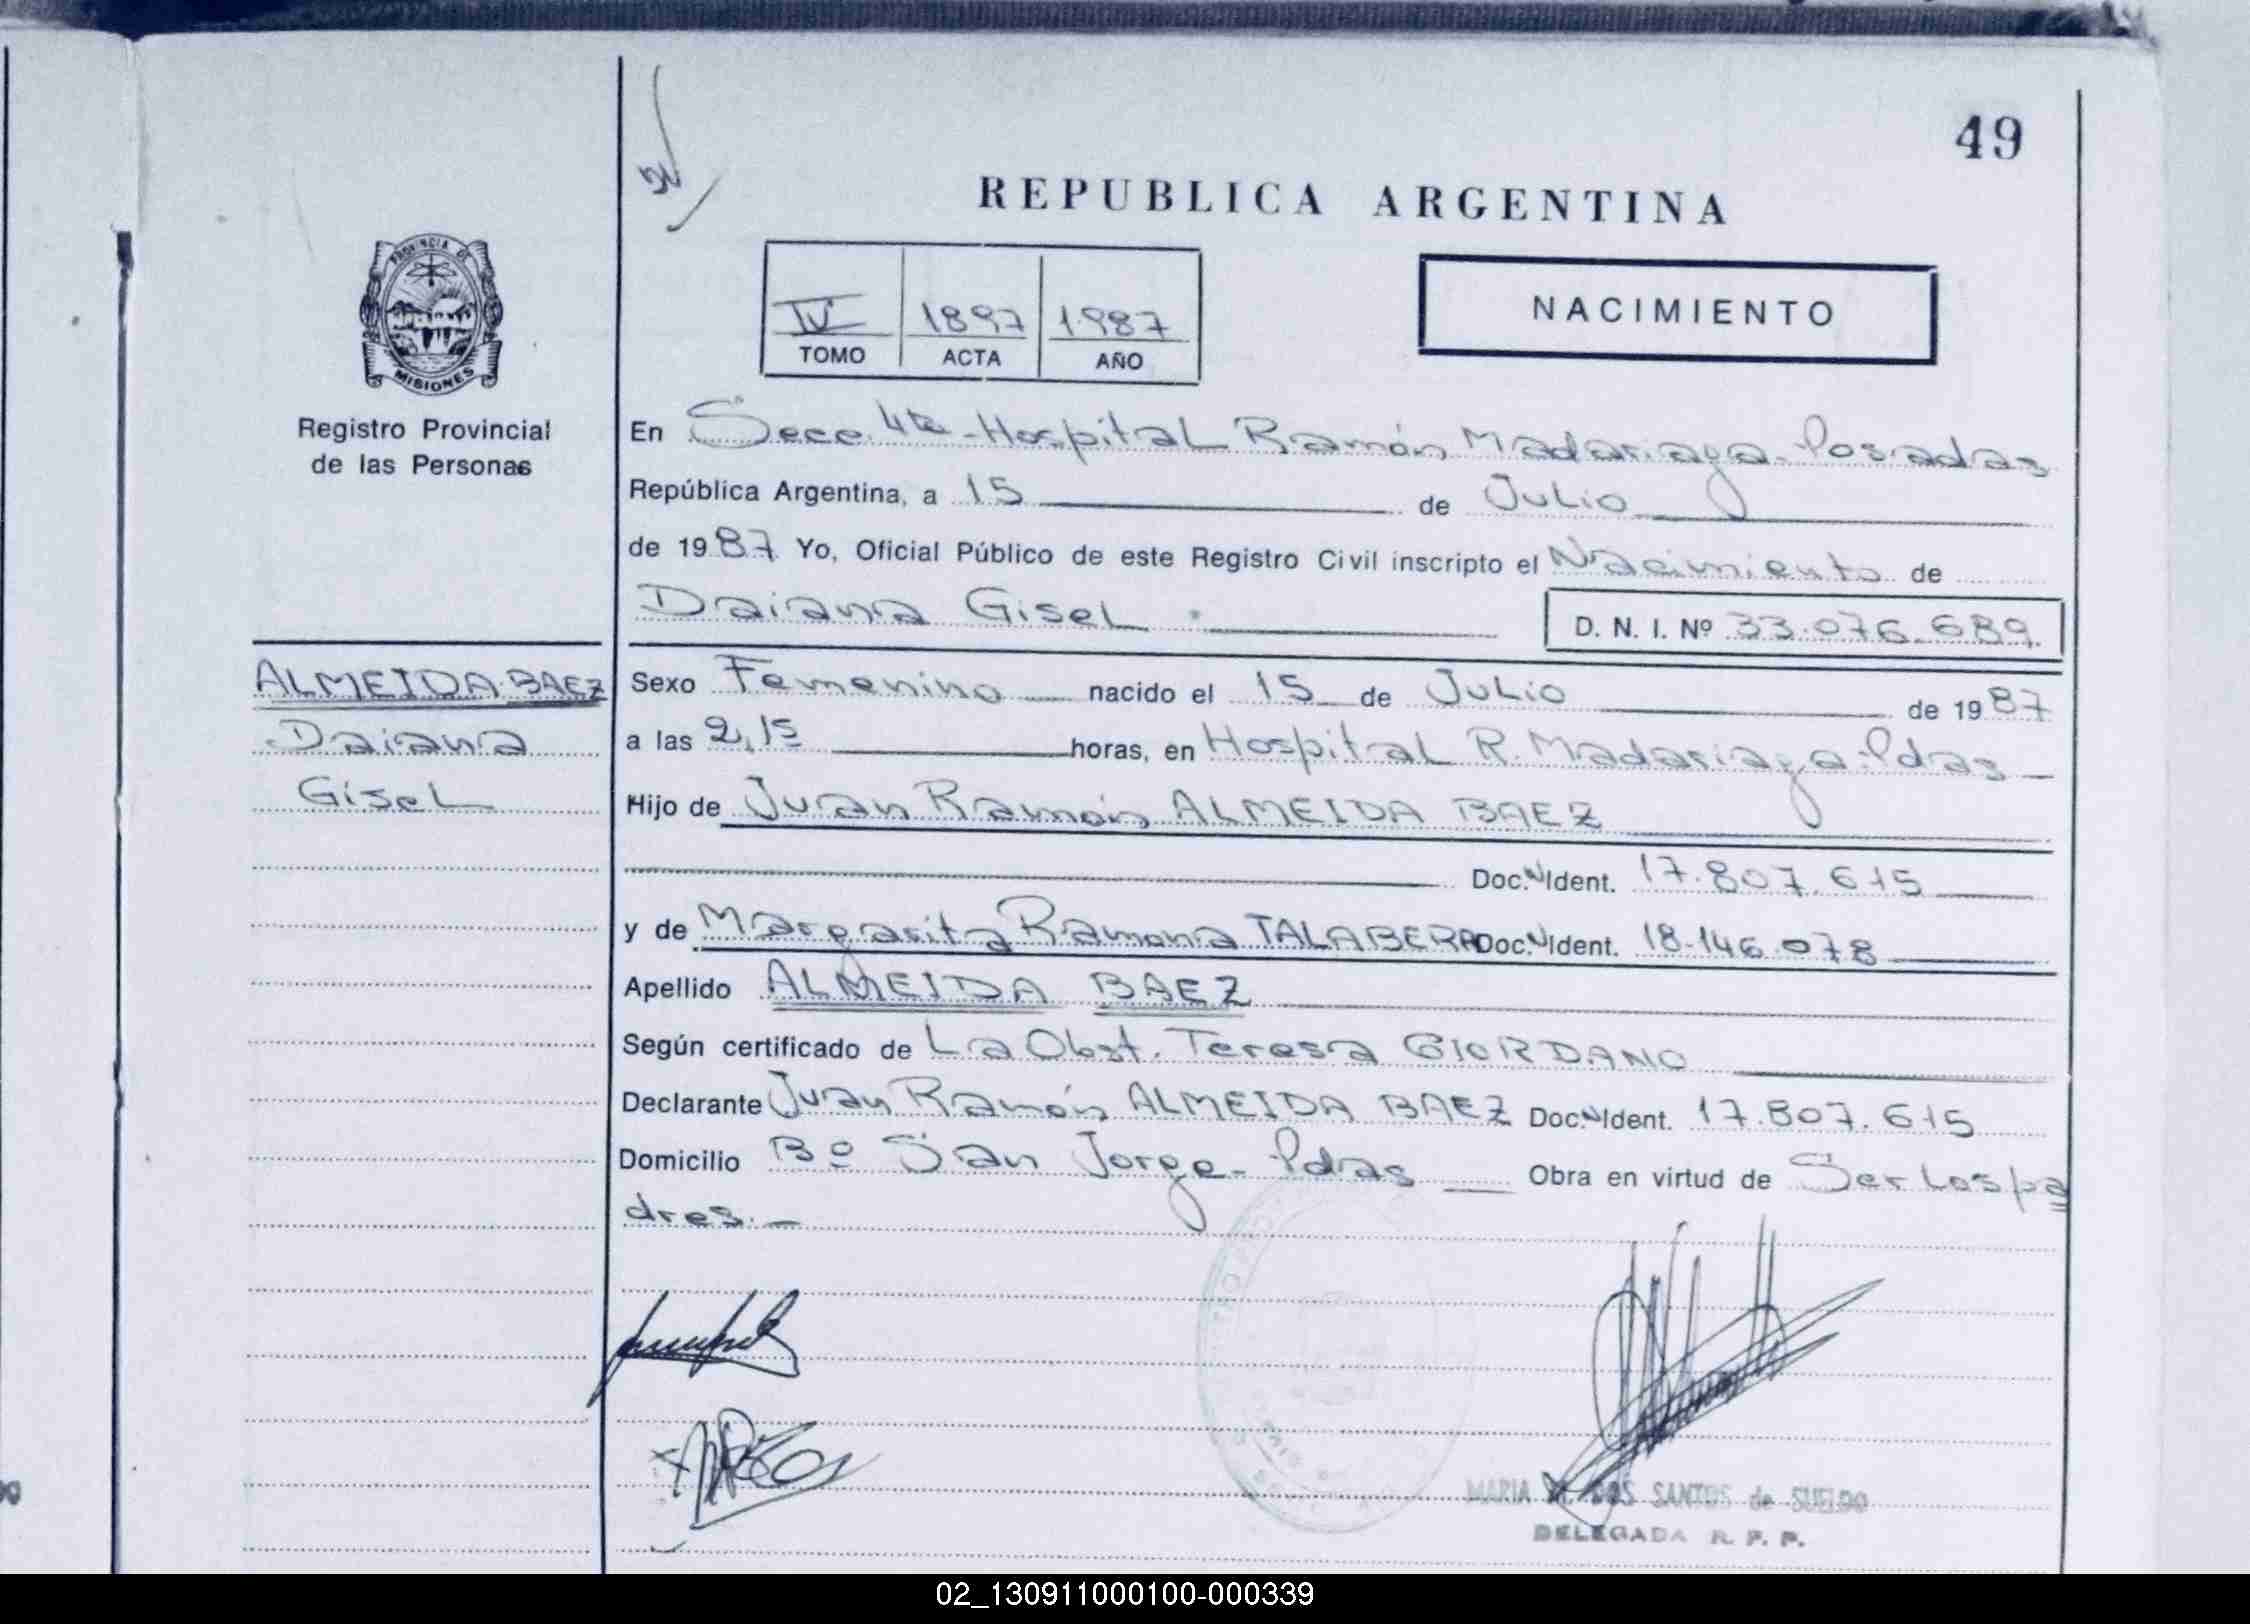 49
REPUBLICA ARGENTINA
PROVINCIA DE
MISIONES
Registro Provincial
de las Personas
IV 1897 1987
TOMO ACTA AÑO
NACIMIENTO
En Secc. 4ta - Hospital Ramón Madariaga - Posadas
República Argentina, a 15 de Julio
de 1987 Yo, Oficial Público de este Registro Civil inscripto el Nacimiento de
Daiana Gisel D. N. I. Nº 33.076.689
ALMEIDA BAEZ
Daiana
Gisel
Sexo Femenino nacido el 15 de Julio de 1987
a las 2,15 horas, en Hospital R. Madariaga - Pdas
Hijo de Juan Ramón ALMEIDA BAEZ
Doc. N Ident. 17.807.615
y de Margarita Ramona TALABERA Doc. N Ident. 18.146.078
Apellido ALMEIDA BAEZ
Según certificado de La Obst. Teresa GIORDANO
Declarante Juan Ramón ALMEIDA BAEZ Doc. N Ident. 17.807.615
Domicilio Bº San Jorge - Pdas Obra en virtud de Ser Los pa
dres. -
MARIA DOS SANTOS de SUELDO
DELEGADA R. P. P.
02_130911000100-000339